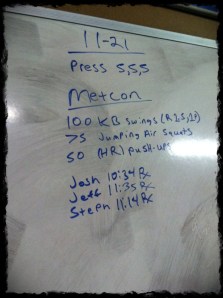 11-21
Press 5,5,5
Metcon
100 KB Swings
75 Jumping Air Squats
50 (HR) Push-ups
Josh 10:34 Rx
Jeff 11:35 Rx
Steph 11:14 Rx